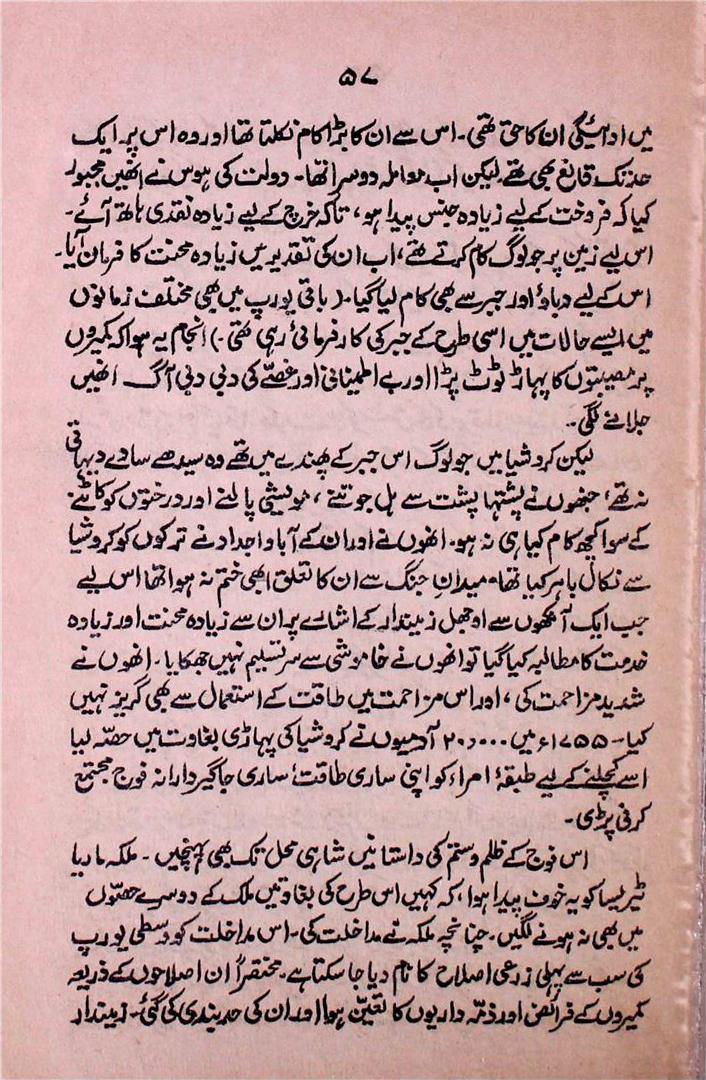 ۵۷
میں ادائیگی ان کا حق تھی۔ اس سے ان کا بڑا کام نکلتا تھا اور وہ اس پر ایک
حد تک قانع بھی تھے۔ لیکن اب معاملہ دوسرا تھا۔ دولت کی ہوس نے انھیں مجبور
کیا کہ فروخت کے لیے زیادہ جنس پیدا ہو، تاکہ خرچ کے لیے زیادہ نقدی ہاتھ آئے۔
اس لیے زمین پر جو لوگ کام کرتے تھے، اب ان کی تقدیر میں زیادہ محنت کا فرمان آیا۔
اس کے لیے دباؤ اور جبر سے بھی کام لیا گیا۔ (باقی یورپ میں بھی مختلف زمانوں
میں ایسے حالات میں اسی طرح کے جبر کی کارفرمائی رہی تھی۔) انجام یہ ہوا کہ کمیروں
پر مصیبتوں کا پہاڑ ٹوٹ پڑا اور بے اطمینانی اور غصّے کی دبی دبی آگ انھیں
جلانے لگی۔
لیکن کروشیا میں جو لوگ اس جبر کے پھندے میں تھے وہ سیدھے سادے دیہاتی
نہ تھے، جنھوں نے پشتہا پشت سے ہل جوتنے، مویشی پالنے اور درختوں کو کاٹنے
کے سوا کچھ کام کیا ہی نہ ہو۔ انھوں نے اور ان کے آبا و اجداد نے ترکوں کو کروشیا
سے نکال باہر کیا تھا۔ میدانِ جنگ سے ان کا تعلق ابھی ختم نہ ہوا تھا اس لیے
جب ایک آنکھوں سے اوجھل زمیندار کے اشارے پر ان سے زیادہ محنت اور زیادہ
خدمت کا مطالبہ کیا گیا تو انھوں نے خاموشی سے سرِ تسلیم نہیں جھکایا۔ انھوں نے
شدید مزاحمت کی، اور اس مزاحمت میں طاقت کے استعمال سے بھی گریز نہیں
کیا۔ ۱۷۵۵ء میں ۲۰،۰۰۰ آدمیوں نے کروشیا کی پہاڑی بغاوت میں حصّہ لیا
اسے کچلنے کے لیے طبقۂ امراء کو اپنی ساری طاقت، ساری جاگیردارانہ فوج مجتمع
کرنی پڑی۔
اس فوج کے ظلم و ستم کی داستانیں شاہی محل تک بھی پہنچیں۔ ملکہ ماریا
ٹیریسا کو یہ خوف پیدا ہوا، کہ کہیں اس طرح کی بغاوتیں ملک کے دوسرے حصّوں
میں بھی نہ ہونے لگیں۔ چنانچہ ملکہ نے مداخلت کی۔ اس مداخلت کو وسطی یورپ
کی سب سے پہلی زرعی اصلاح کا نام دیا جا سکتا ہے۔ مختصراً ان اصلاحوں کے ذریعہ
کمیروں کے فرائض اور ذمّہ داریوں کا تعیّن ہوا اور ان کی حد بندی کی گئی۔ زمیندار